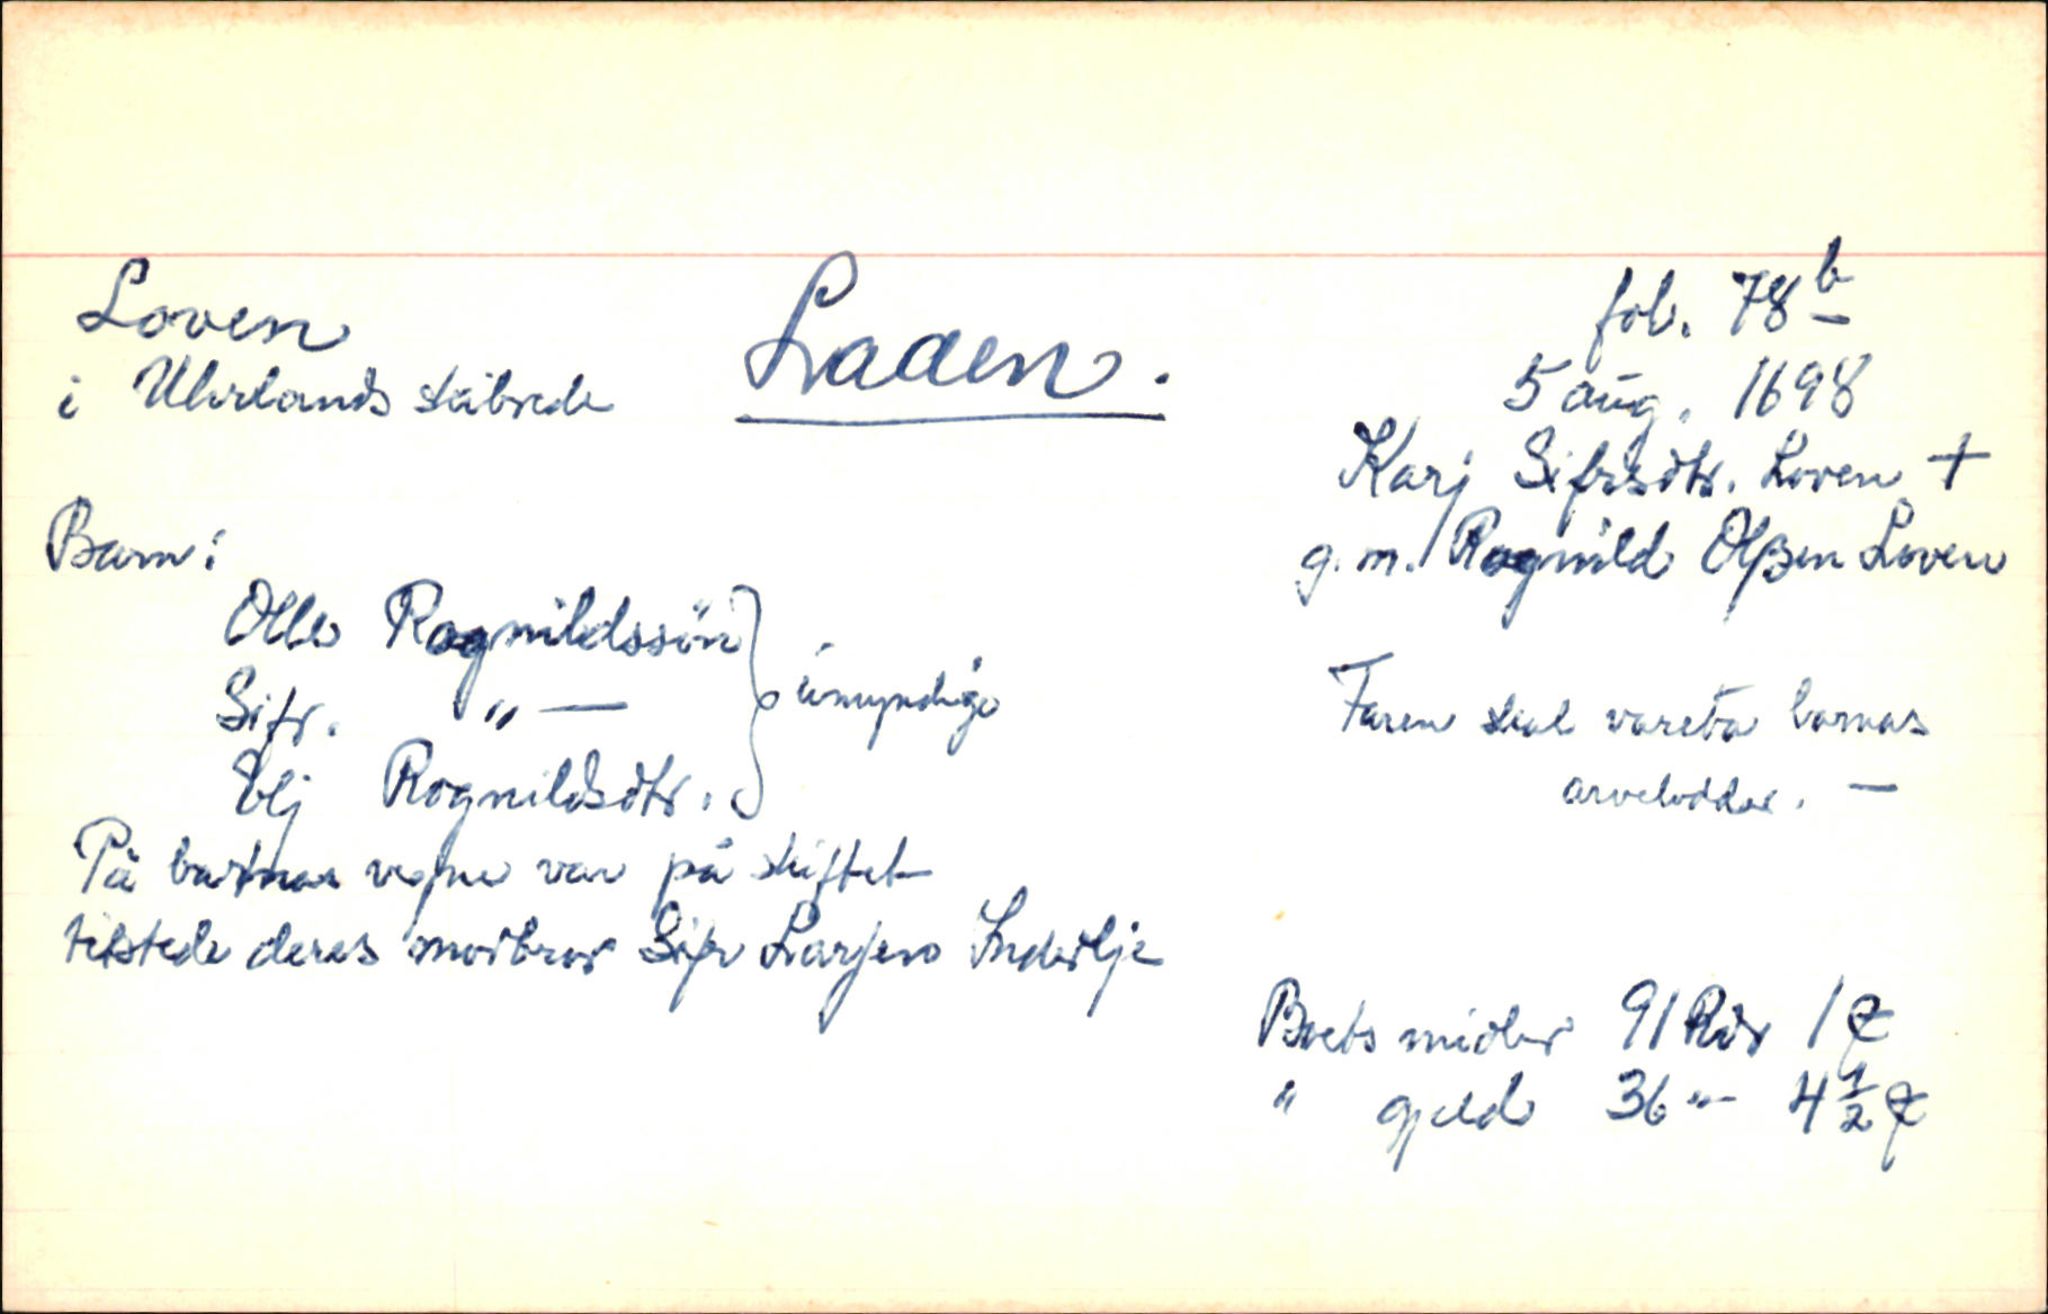 Loven
i Uhrlands skibrede
Laaen.
fol. 78 b
5 aug. 1698
Karj Sifrsdtr. Loven +
g. m. Rognild Olßen Loven
Barn:
Olle Rognildssön
Sifr. " —
Elj Rognildsdtr.
umyndige
Faren skal vareta barnas
arvelodder. —
På barnas vegne var på skiftet
tilstede deres morbror Sifr Larsen Inderlje
Boets midler 91 Rdr 1 ₰
" gjeld 36 " 4 1/2 ₰